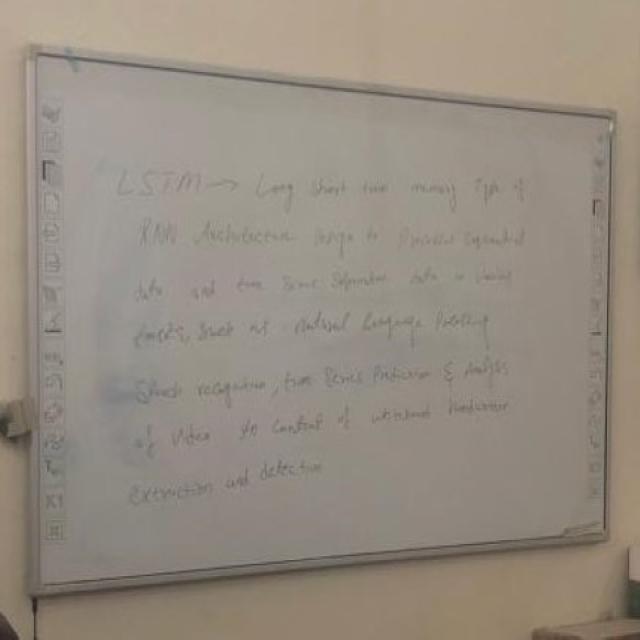 LSTM → Long short term memory Type of
RNN Architecture design to Process Sequential
data and time Series data in
such as Natural Language Processing
recognition, time Series Prediction & Analysis
of Video to content of
extraction and detection